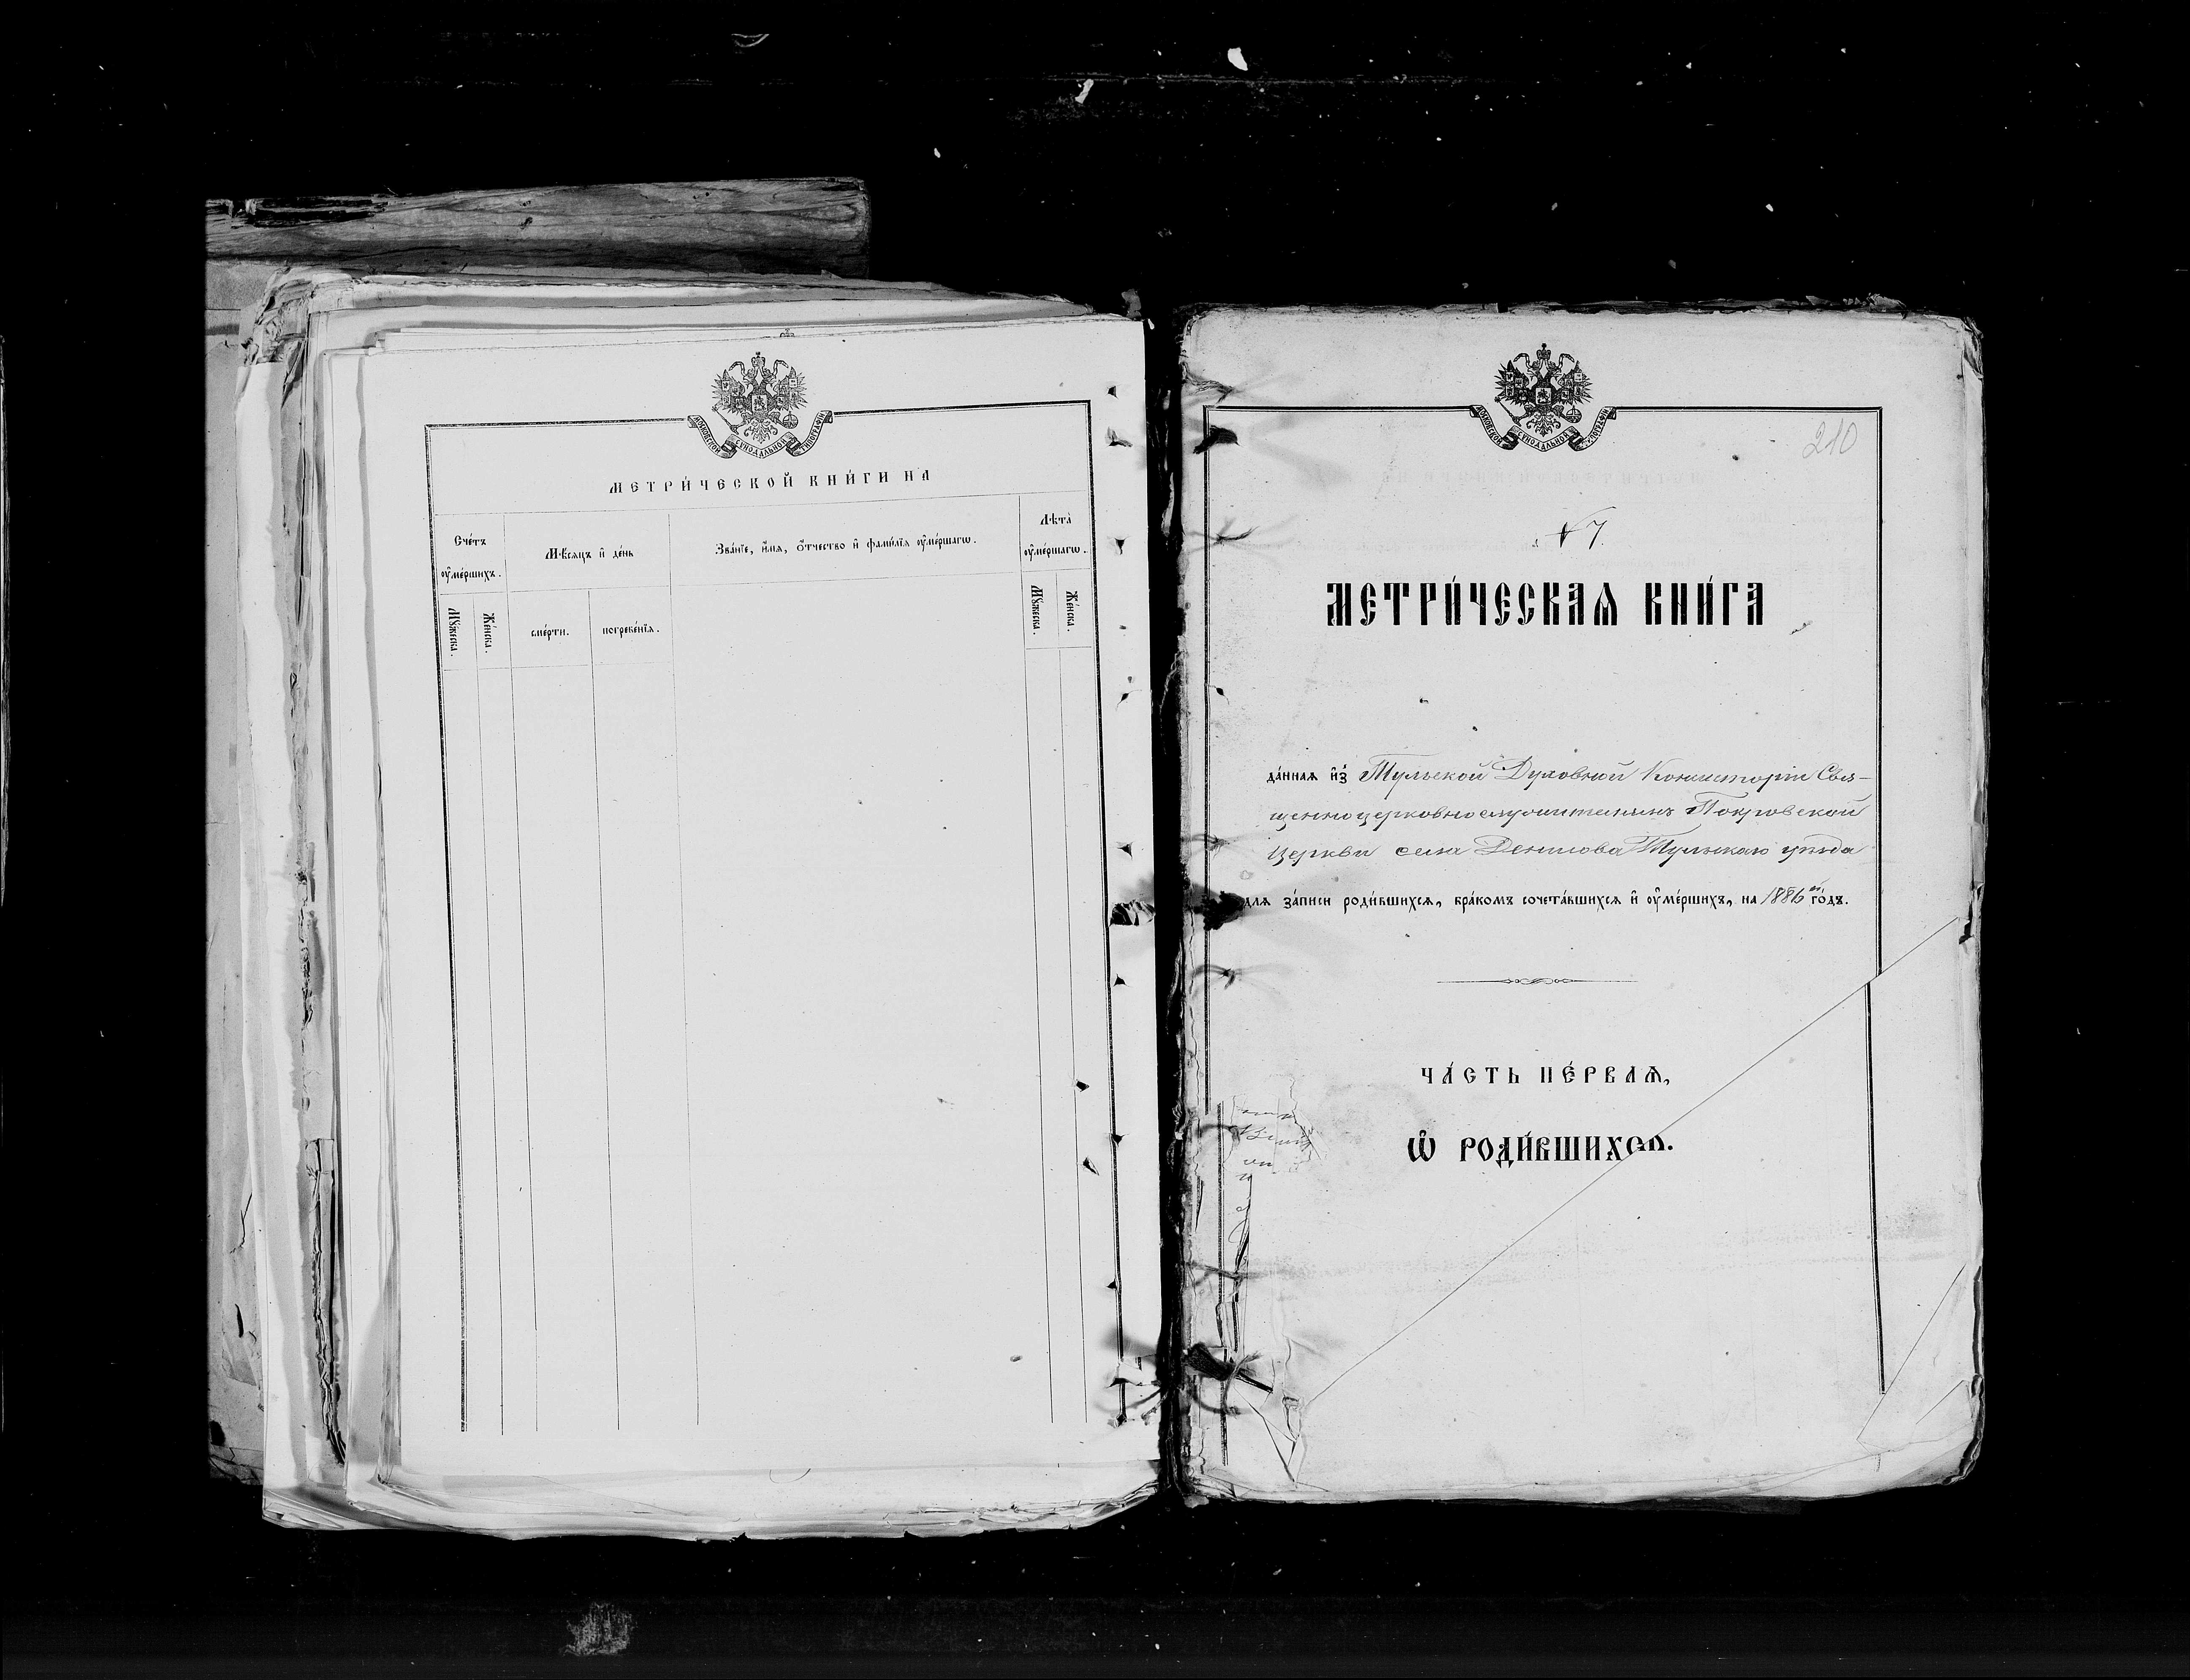 МОСКОВСКОЙ СѴНОДАЛЬНОЙ ТИПОГРАФІИ
МЕТРИ́ЧЕСКОЙ КНИ́ГИ НА
Сче́тъ ᲂу҆ме́ршихъ.
Мѣ́сяцъ и҆ де́нь
Зва́нїе, и҆́мя, ѻ҆́тчество и҆ фами́лїя ᲂу҆ме́ршагѡ.
Лѣта̀ ᲂу҆ме́ршагѡ.
Мꙋ́жеска.
Же́нска.
сме́рти.
погребе́нїя.
Мꙋ́жеска.
Же́нска.
МОСКОВСКОЙ СѴНОДАЛЬНОЙ ТИПОГРАФІИ
210
№ 7.
МЕТРИ́ЧЕСКАѦ КНИ́ГА
да́ннаѧ и҆з̾ Тульской Духовной Консисторіи Свя-
щенноцерковнослужителямъ Покровской
Церкви села Денилова Тульскаго уѣзда
для за́писи роди́вшихсѧ, бра́комъ сочета́вшихсѧ и҆ ᲂу҆ме́ршихъ, на 1886й го́дъ.
ЧА́СТЬ ПЕ́РВАѦ,
Ѡ҆ РОДИ́ВШИХСѦ.